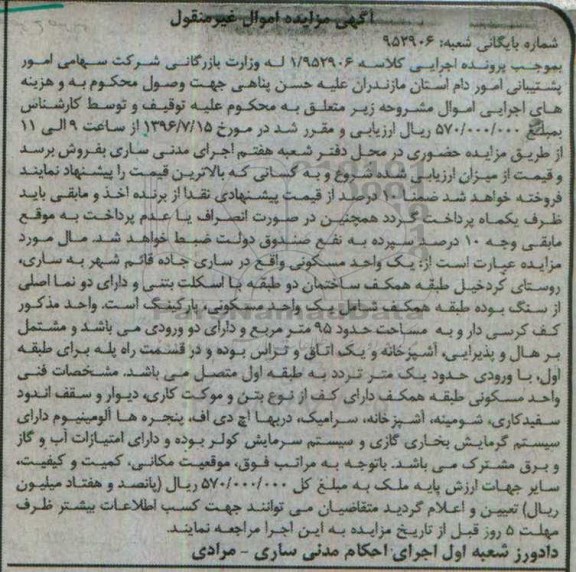 آگهی مزایده اموال غیرمنقول
شماره بایگانی شعبه: ۹۵۲۹۰۶
بموجب پرونده اجرایی کلاسه ۱/۹۵۲۹۰۶ له وزارت بازرگانی شرکت سهامی امور
پشتیبانی امور دام استان مازندران علیه حسن پناهی جهت وصول محکوم به و هزینه
های اجرایی اموال مشروحه زیر متعلق به محکوم علیه توقیف و توسط کارشناس
بمبلغ ۵۷۰/۰۰۰/۰۰۰ ریال ارزیابی و مقرر شد در مورخ ۱۳۹۶/۷/۱۵ از ساعت ۹ الی ۱۱
از طریق مزایده حضوری در محل دفتر شعبه هفتم اجرای مدنی ساری بفروش برسد
و قیمت از میزان ارزیابی شده شروع و به کسانی که بالاترین قیمت را پیشنهاد نمایند
فروخته خواهد شد ضمنا ۱۰ درصد از قیمت پیشنهادی نقدا از برنده اخذ و مابقی باید
ظرف یکماه پرداخت گردد همچنین در صورت انصراف یا عدم پرداخت به موقع
مابقی وجه ۱۰ درصد سپرده به نفع صندوق دولت ضبط خواهد شد. مال مورد
مزایده عبارت است از: یک واحد مسکونی واقع در ساری جاده قائم شهر به ساری،
روستای گردخیل طبقه همکف ساختمان دو طبقه با اسکلت بتنی و دارای دو نما اصلی
از سنگ بوده طبقه همکف شامل یک واحد مسکونی، پارکینگ است. واحد مذکور
کف کرسی دار و به مساحت حدود ۹۵ متر مربع و دارای دو ورودی می باشد و مشتمل
بر هال و پذیرایی، آشپزخانه و یک اتاق و تراس بوده و در قسمت راه پله برای طبقه
اول، با ورودی حدود یک متر تردد به طبقه اول متصل می باشد. مشخصات فنی
واحد مسکونی طبقه همکف دارای کف از نوع بتن و موکت کاری، دیوار و سقف اندود
سفیدکاری، شومینه، آشپزخانه، سرامیک، دربها اچ دی اف، پنجره ها آلومینیوم دارای
سیستم گرمایش بخاری گازی و سیستم سرمایش کولر بوده و دارای امتیازات آب و گاز
و برق مشترک می باشد. باتوجه به مراتب فوق، موقعیت مکانی، کمیت و کیفیت،
سایر جهات ارزش پایه ملک به مبلغ کل ۵۷۰/۰۰۰/۰۰۰ ریال (پانصد و هفتاد میلیون
ریال) تعیین و اعلام گردید متقاضیان می توانند جهت کسب اطلاعات بیشتر ظرف
مهلت ۵ روز قبل از تاریخ مزایده به این اجرا مراجعه نمایند.
دادورز شعبه اول اجرای احکام مدنی ساری - مرادی